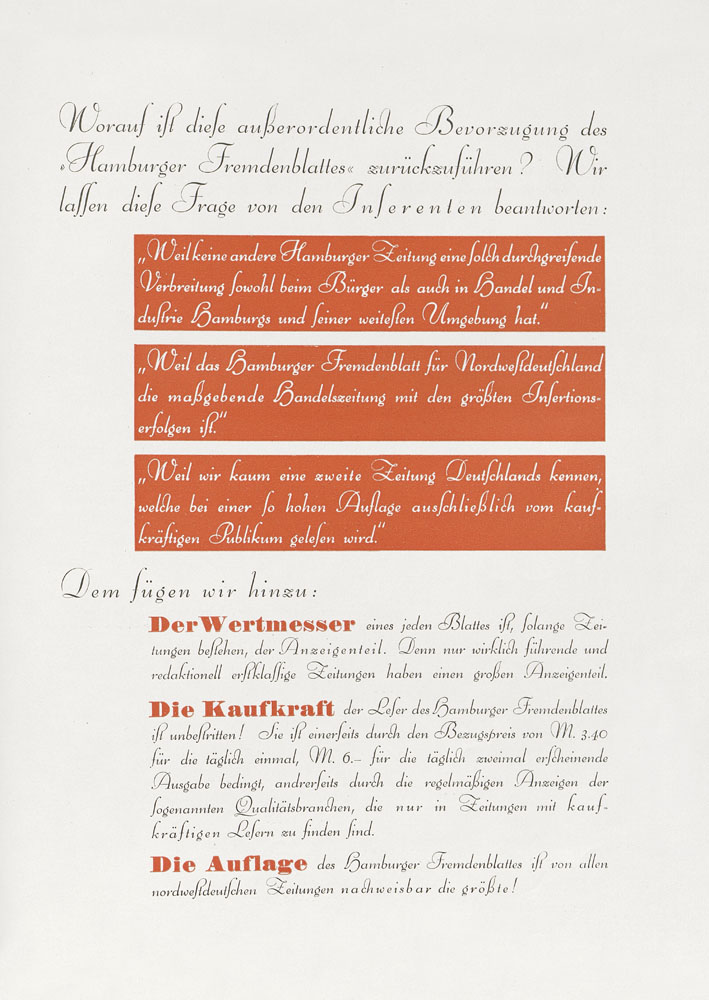 Worauf iſt dieſe außerordentliche Bevorzugung des
»Hamburger Fremdenblattes« zurückzuführen? Wir
laſſen dieſe Frage von den Inſerenten beantworten:
„Weil keine andere Hamburger Zeitung eine ſolch durchgreifende
Verbreitung ſowohl beim Bürger als auch in Handel und In-
duſtrie Hamburgs und ſeiner weiteſten Umgebung hat.“
„Weil das Hamburger Fremdenblatt für Nordweſtdeutſchland
die maßgebende Handelszeitung mit den größten Inſertions-
erfolgen iſt.“
„Weil wir kaum eine zweite Zeitung Deutſchlands kennen,
welche bei einer ſo hohen Auflage ausſchließlich vom kauf-
kräftigen Publikum geleſen wird.“
Dem fügen wir hinzu:
Der Wertmesser eines jeden Blattes iſt, ſolange Zei-
tungen beſtehen, der Anzeigenteil. Denn nur wirklich führende und
redaktionell erſtklaſſige Zeitungen haben einen großen Anzeigenteil.
Die Kaufkraft der Leſer des Hamburger Fremdenblattes
iſt unbeſtritten! Sie iſt einerſeits durch den Bezugspreis von M. 3.40
für die täglich einmal, M. 6.– für die täglich zweimal erſcheinende
Ausgabe bedingt, andrerſeits durch die regelmäßigen Anzeigen der
ſogenannten Qualitätsbranchen, die nur in Zeitungen mit kauf-
kräftigen Leſern zu finden ſind.
Die Auflage des Hamburger Fremdenblattes iſt von allen
nordweſtdeutſchen Zeitungen nachweisbar die größte!